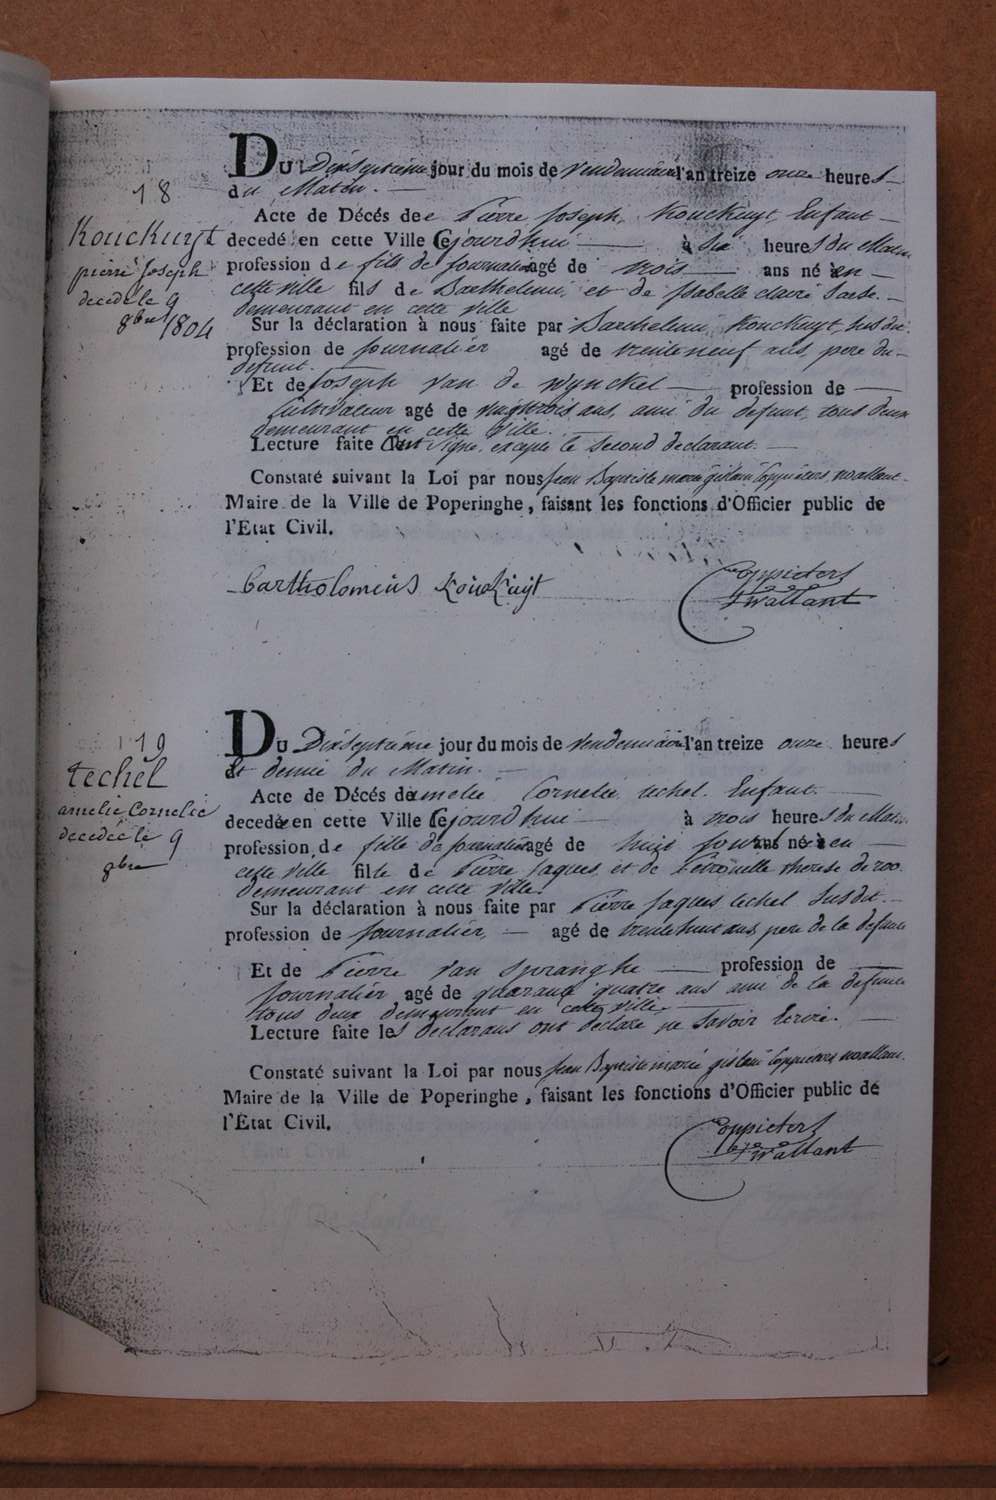 18
Kouckuyt
pierre joseph
decedé le 9
8bre 1804
DU Dixseptieme jour du mois de Vendemiaire l'an treize onze heures
du Matin. —
Acte de Décés de Pierre Joseph Kouckuyt, Enfant —
decedé en cette Ville Cejourdhui — à six heures du Matin
profession de fils de Journalier agé de trois — ans né en —
cette ville fils de Barthelemi, et de Isabelle claire
demeurant en cette Ville
Sur la déclaration à nous faite par Barthelemi Kouckuyt, susdit
profession de Journalier agé de trente neuf ans, pere du —
defunt. —
Et de Joseph Van de Wynckel — profession de —
Cultivateur agé de vingttrois ans, ami du defunt, tous deux
demeurant en cette Ville. —
Lecture faite signé, excepté le second declarant. —
Constaté suivant la Loi par nous Jean Baptiste marie gislain Coppieters wallant
Maire de la Ville de Poperinghe, faisant les fonctions d'Officier public de
l'Etat Civil.
Bartholomeus Kouckuyt
Coppieters
Twallant
19
techel
amelie Cornelie
decedée le 9
8bre
DU Dixseptieme jour du mois de Vendemiaire l'an treize onze heures
et demie du Matin. —
Acte de Décés de amelie Cornelie techel. Enfant. —
decedée en cette Ville Cejourdhui — à trois heures du Matin
profession de fille de Journalier agé de huit jours ans née en —
cette ville fille de Pierre Jaques, et de Petronille therese de roo.
demeurant en cette Ville.
Sur la déclaration à nous faite par Pierre Jaques techel susdit. —
profession de Journalier, — agé de trentehuit ans, pere de la defunte
Et de Pierre Van Spranghe — profession de —
Journalier agé de quarante quatre ans ami de la defunte
tous deux demeurant en cette ville —
Lecture faite les declarans ont declaré ne savoir Ecrire. —
Constaté suivant la Loi par nous Jean Baptiste marie gislain Coppieters wallant.
Maire de la Ville de Poperinghe, faisant les fonctions d'Officier public de
l'Etat Civil.
Coppieters
Twallant